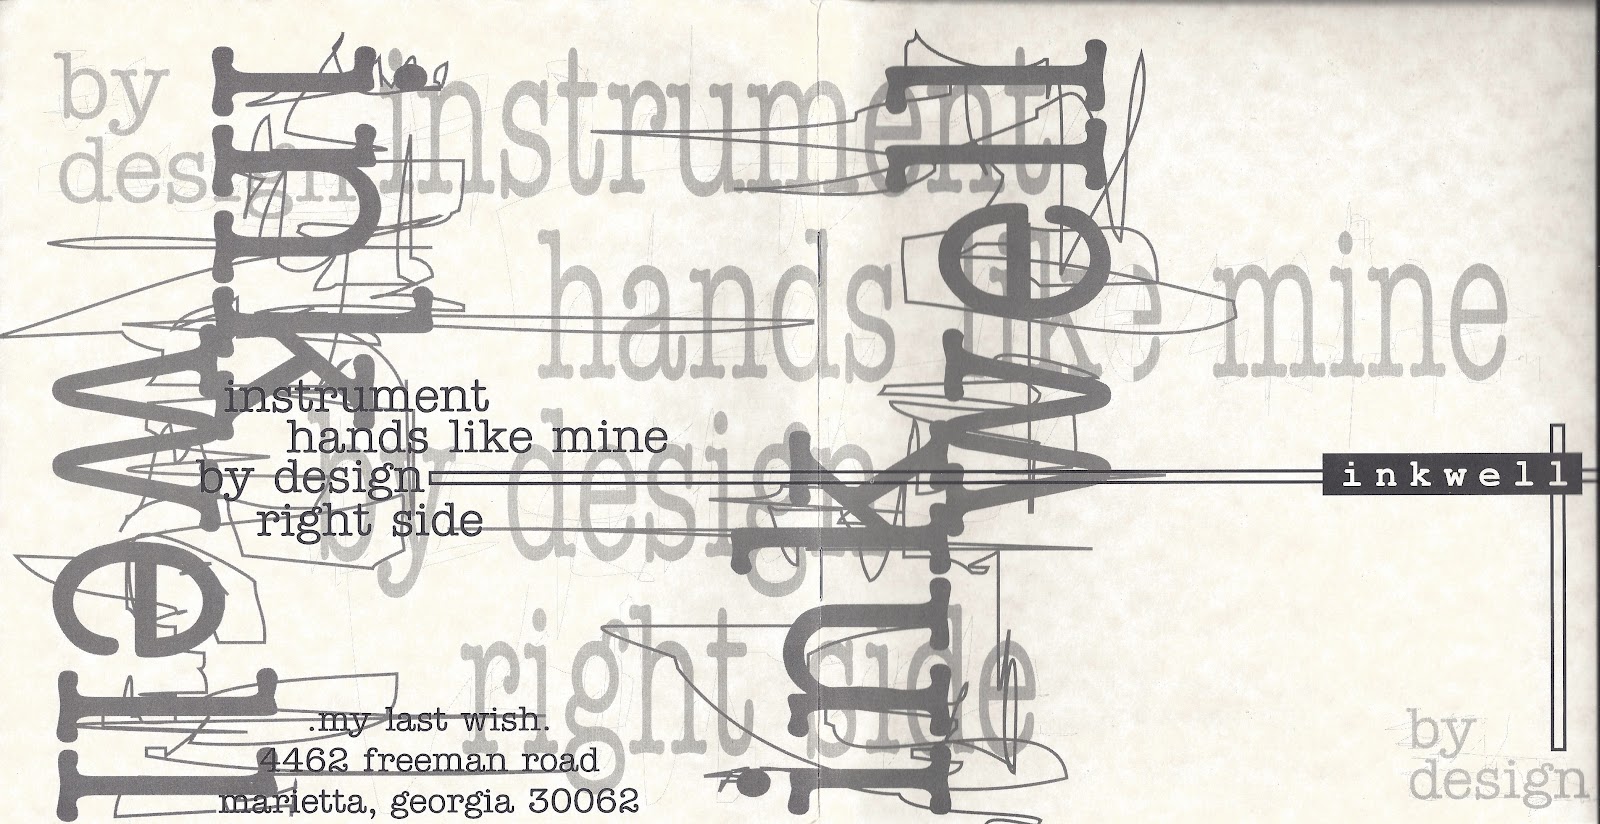 by
design
inkwell
inkwell
instrument
hands like mine
by design
right side
instrument
hands like mine
by design
right side
.my last wish.
4462 freeman road
marietta, georgia 30062
inkwell
by
design